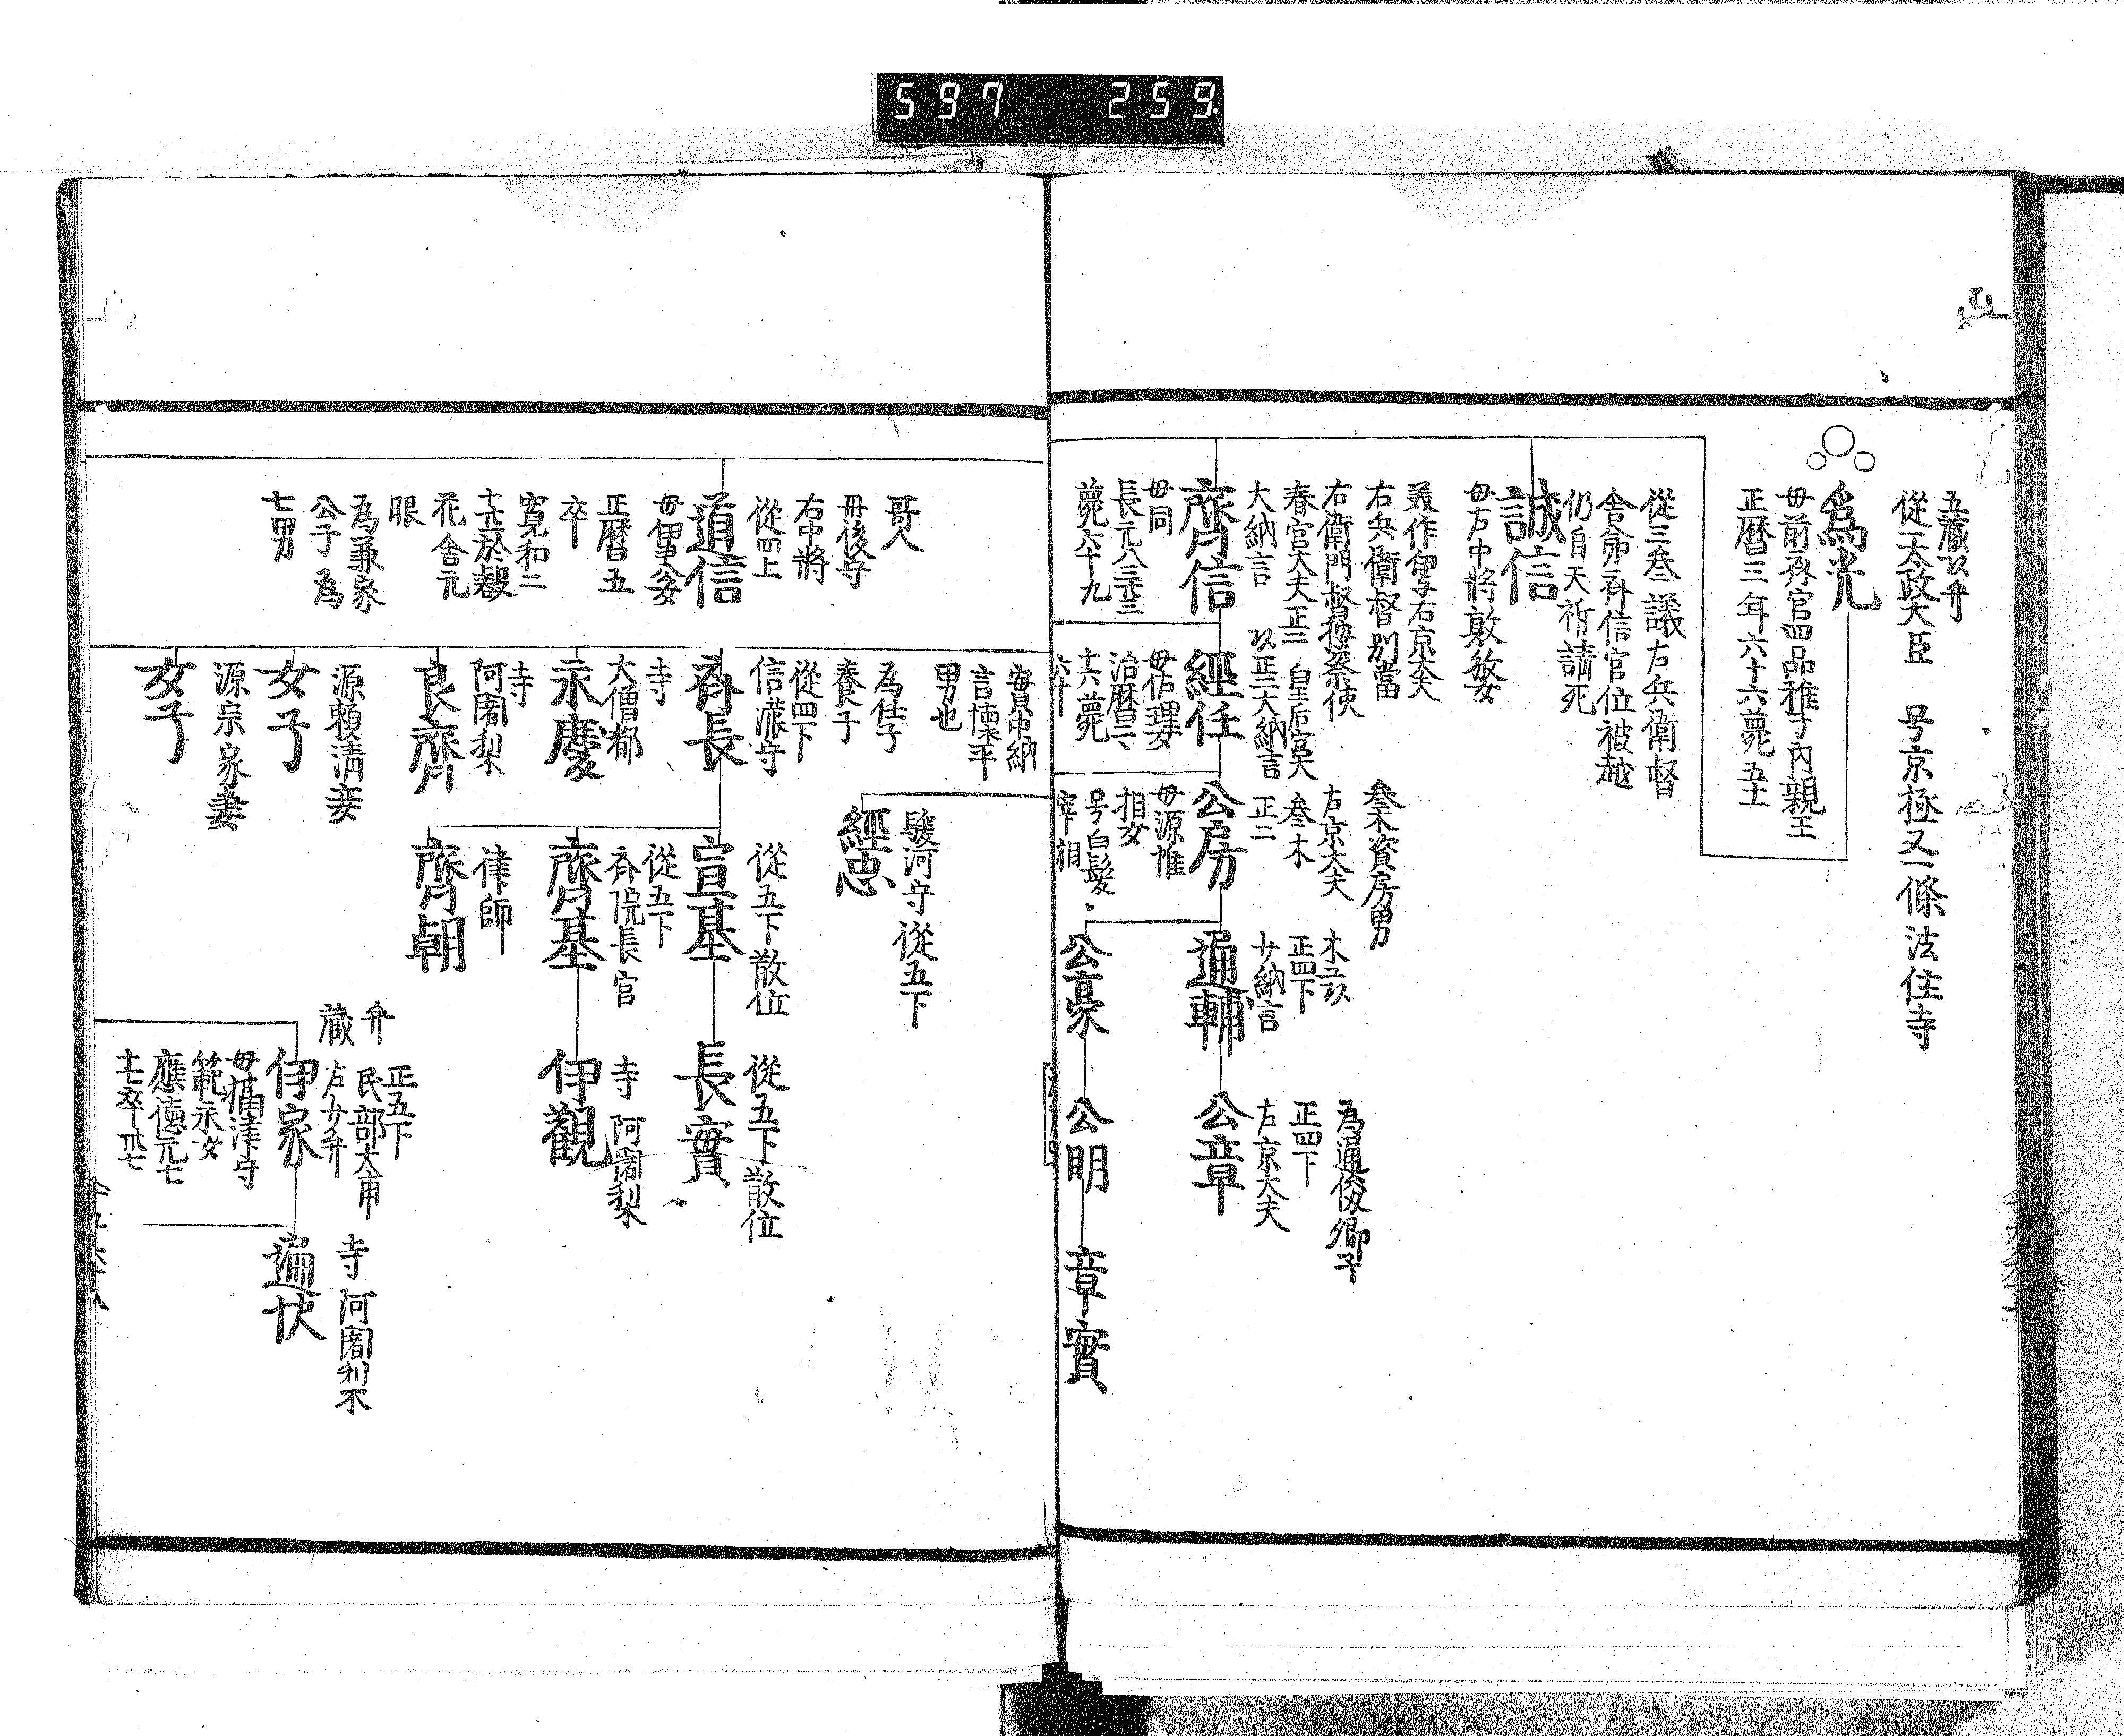 597 259
五蔵以弁
從一太政大臣 号京極又一條法住寺
爲光
毋前斉宮四品雅子内親王
正暦三年六十六薨五十一
從三叅議左兵衛督
舎弟斉信官位被越
仍自天祈請死
誠信
毋左中將敦敏女
美作伊与右京大夫
右兵衛督別當
右衛門督按察使
春宮大夫正二 皇后宮大夫
大納言
齊信
毋同
長元八三廿三
薨六十九
以正二大納言
經任
毋佐理女
治暦二二
十六薨
六十六
叅木資房男
左京大夫
叅木
正二
公房
毋源惟
相女
号白髪
宰相
木工以
正四下
少納言
通輔
公豪
為通俊卿子
正四下
左京大夫
公章
公明
章實
哥人
丹後守
右中將
從四上
道信
毋伊尹公女
正暦五
卒
寛和二
於殿
花舎元
眼
為兼家
公子 為
七男
實中納
言懐平
男也
為仕子
養子
從四下
信濃守
斉長
寺
大僧都
永慶
寺
阿闍梨
良齊
源頼清妾
女子
源宗家妻
女子
駿河守從五下
經忠
從五下散位
宣基
從五下
斉院長官
齊基
律師
齊朝
從五下散位
長實
寺 阿闍梨
伊觀
弁
蔵
正五下
民部大甫
左少弁
伊家
毋攝津守
範永女
應徳元七
十七卒卅七
寺 阿闍利不
遍快